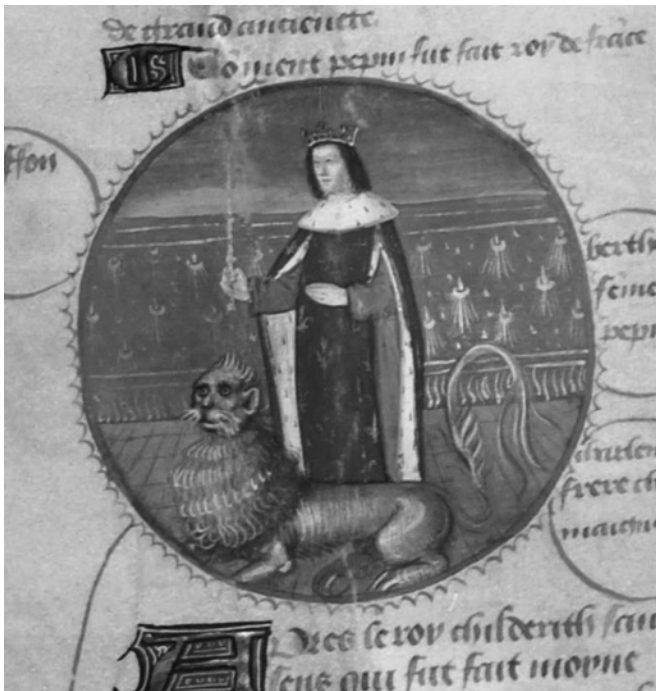 de grand anciennete
Coment pepin fut fait roy de frace
ffon
berth
feme
pepi
charlem
frere ch
maign
Apres le roy childerich san
sens qui fut fait moyne